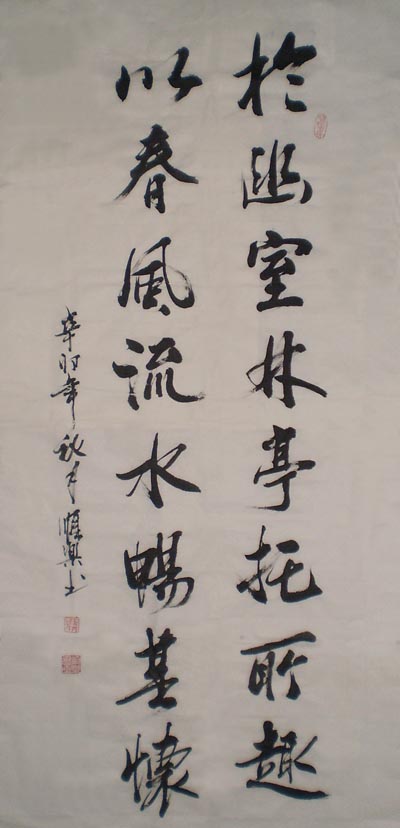 於幽室林亭托所趣
以春風流水暢其懷
辛卯年秋月順书